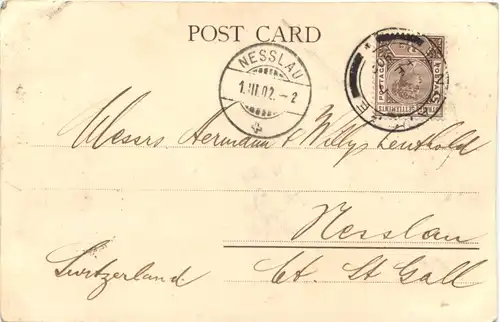 POST CARD
NESSLAU
1.III.02.-2
POSTAGE
Messrs Hermann & Willy Leuthold
Nesslau
Switzerland. Ct. St Gall